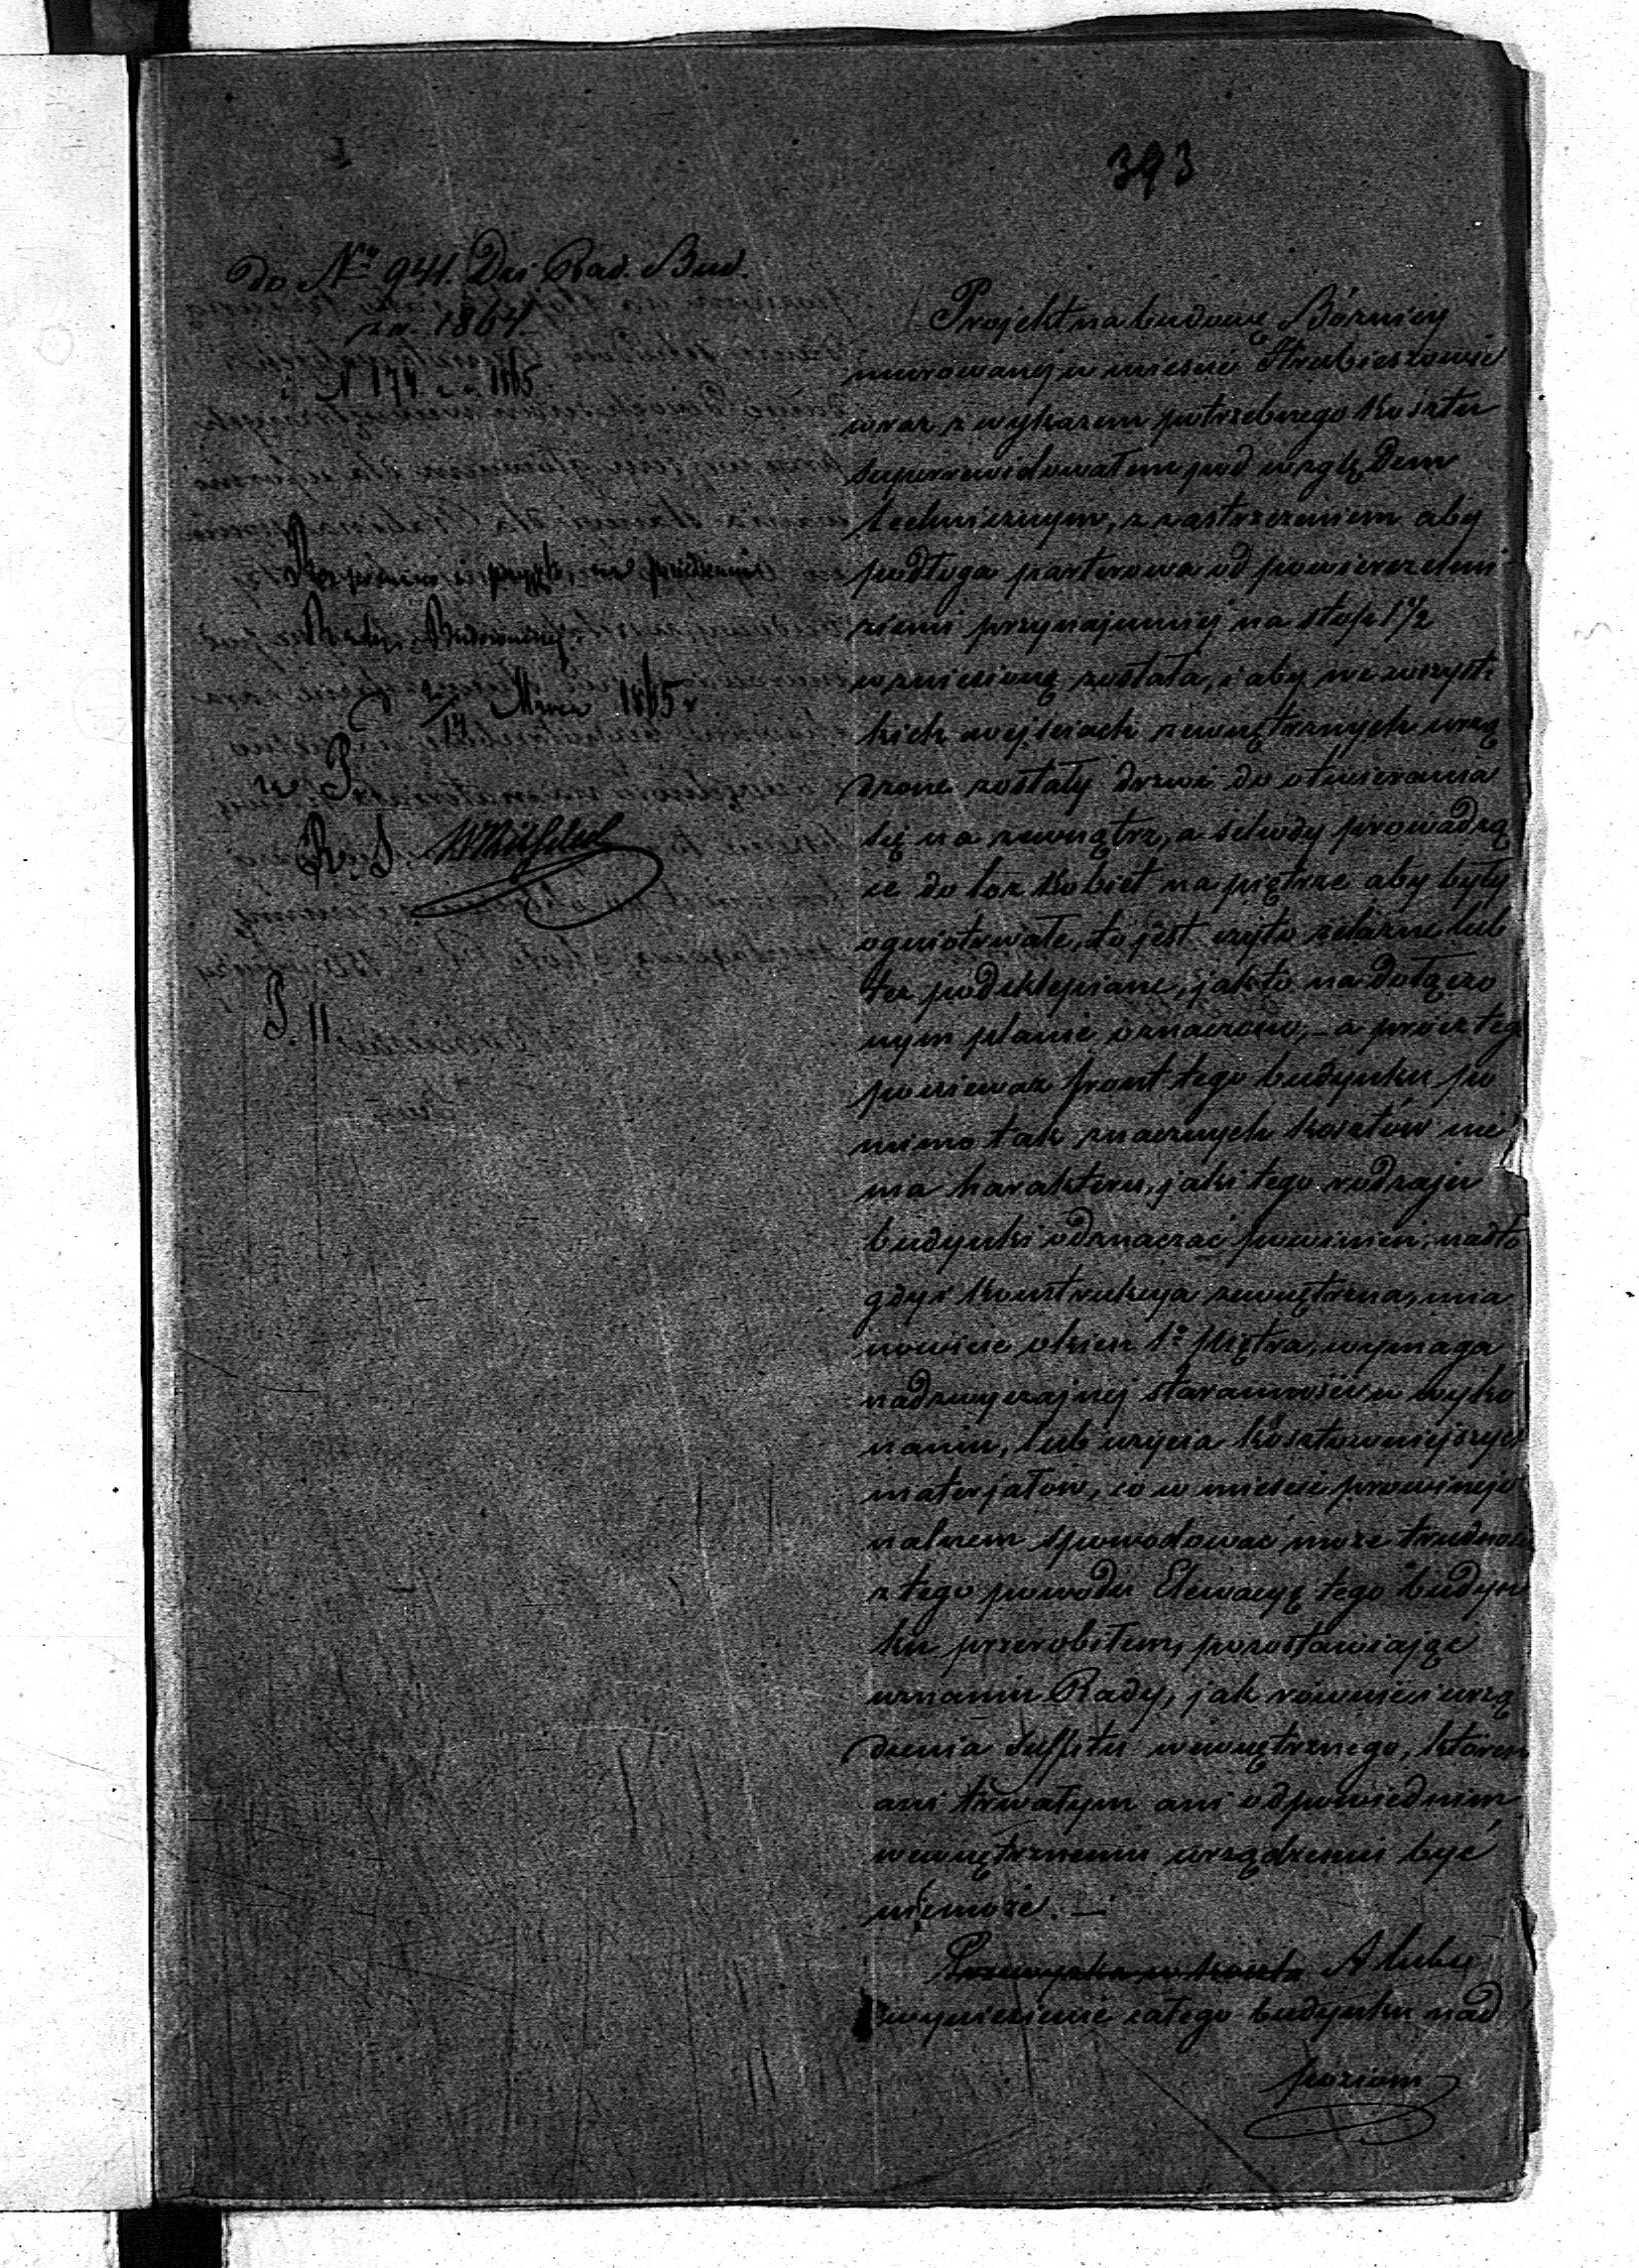 393
do No 941. Dzi Rad. Bud.
z r. 1864
i N 174 z r. 1865
Rady Budowniczej
2/14 Marca 1865 r
R. S.
P. 11
Projekt na budowę Bóżnicy
murowanej w mieście Hrubieszowie
wraz z wykazem potrzebnego kosztu
superrewidowałem pod względem
technicznym, z zastrzeżeniem aby
podłoga parterowa od powierzchni
ziemi przynajmniej na stóp 1 1/2
wzniesioną została, i aby we wszyst
kich wejściach zewnętrznych urzą
dzone zostały drzwi do otwierania
się na zewnątrz, a schody prowadzą
ce do lóż kobiet na piętrze aby były
ogniotrwałe, to jest czyto żelazne lub
też podsklepiane, jak to na dołączo
nym planie oznaczono, – a prócz teg
ponieważ front tego budynku po
mimo tak znacznych kosztów nie
ma harakteru, jaki tego rodzaju
budynki odznaczać powinien, nadto
gdyż konstrukcya zewnętrzna, mia
nowicie okien 1o piętra, wymaga
nadzwyczajnej staranności w wyko
naniu, lub użycia kosztowniejszych
materjałów, co w mieście prowincjo
nalnem spowodować może trudności
z tego powodu Elewacyę tego budyn
ku przerobiłem, pozostawiając
uznaniu Rady, jak również i urzą
dzenia suffitu wewnętrznego, któren
ani trwałym ani odpowiednim
wewnętrznemu urządzeniu być
niemoże. –
A lubo
wyniesienie całego budynku nad
poziom